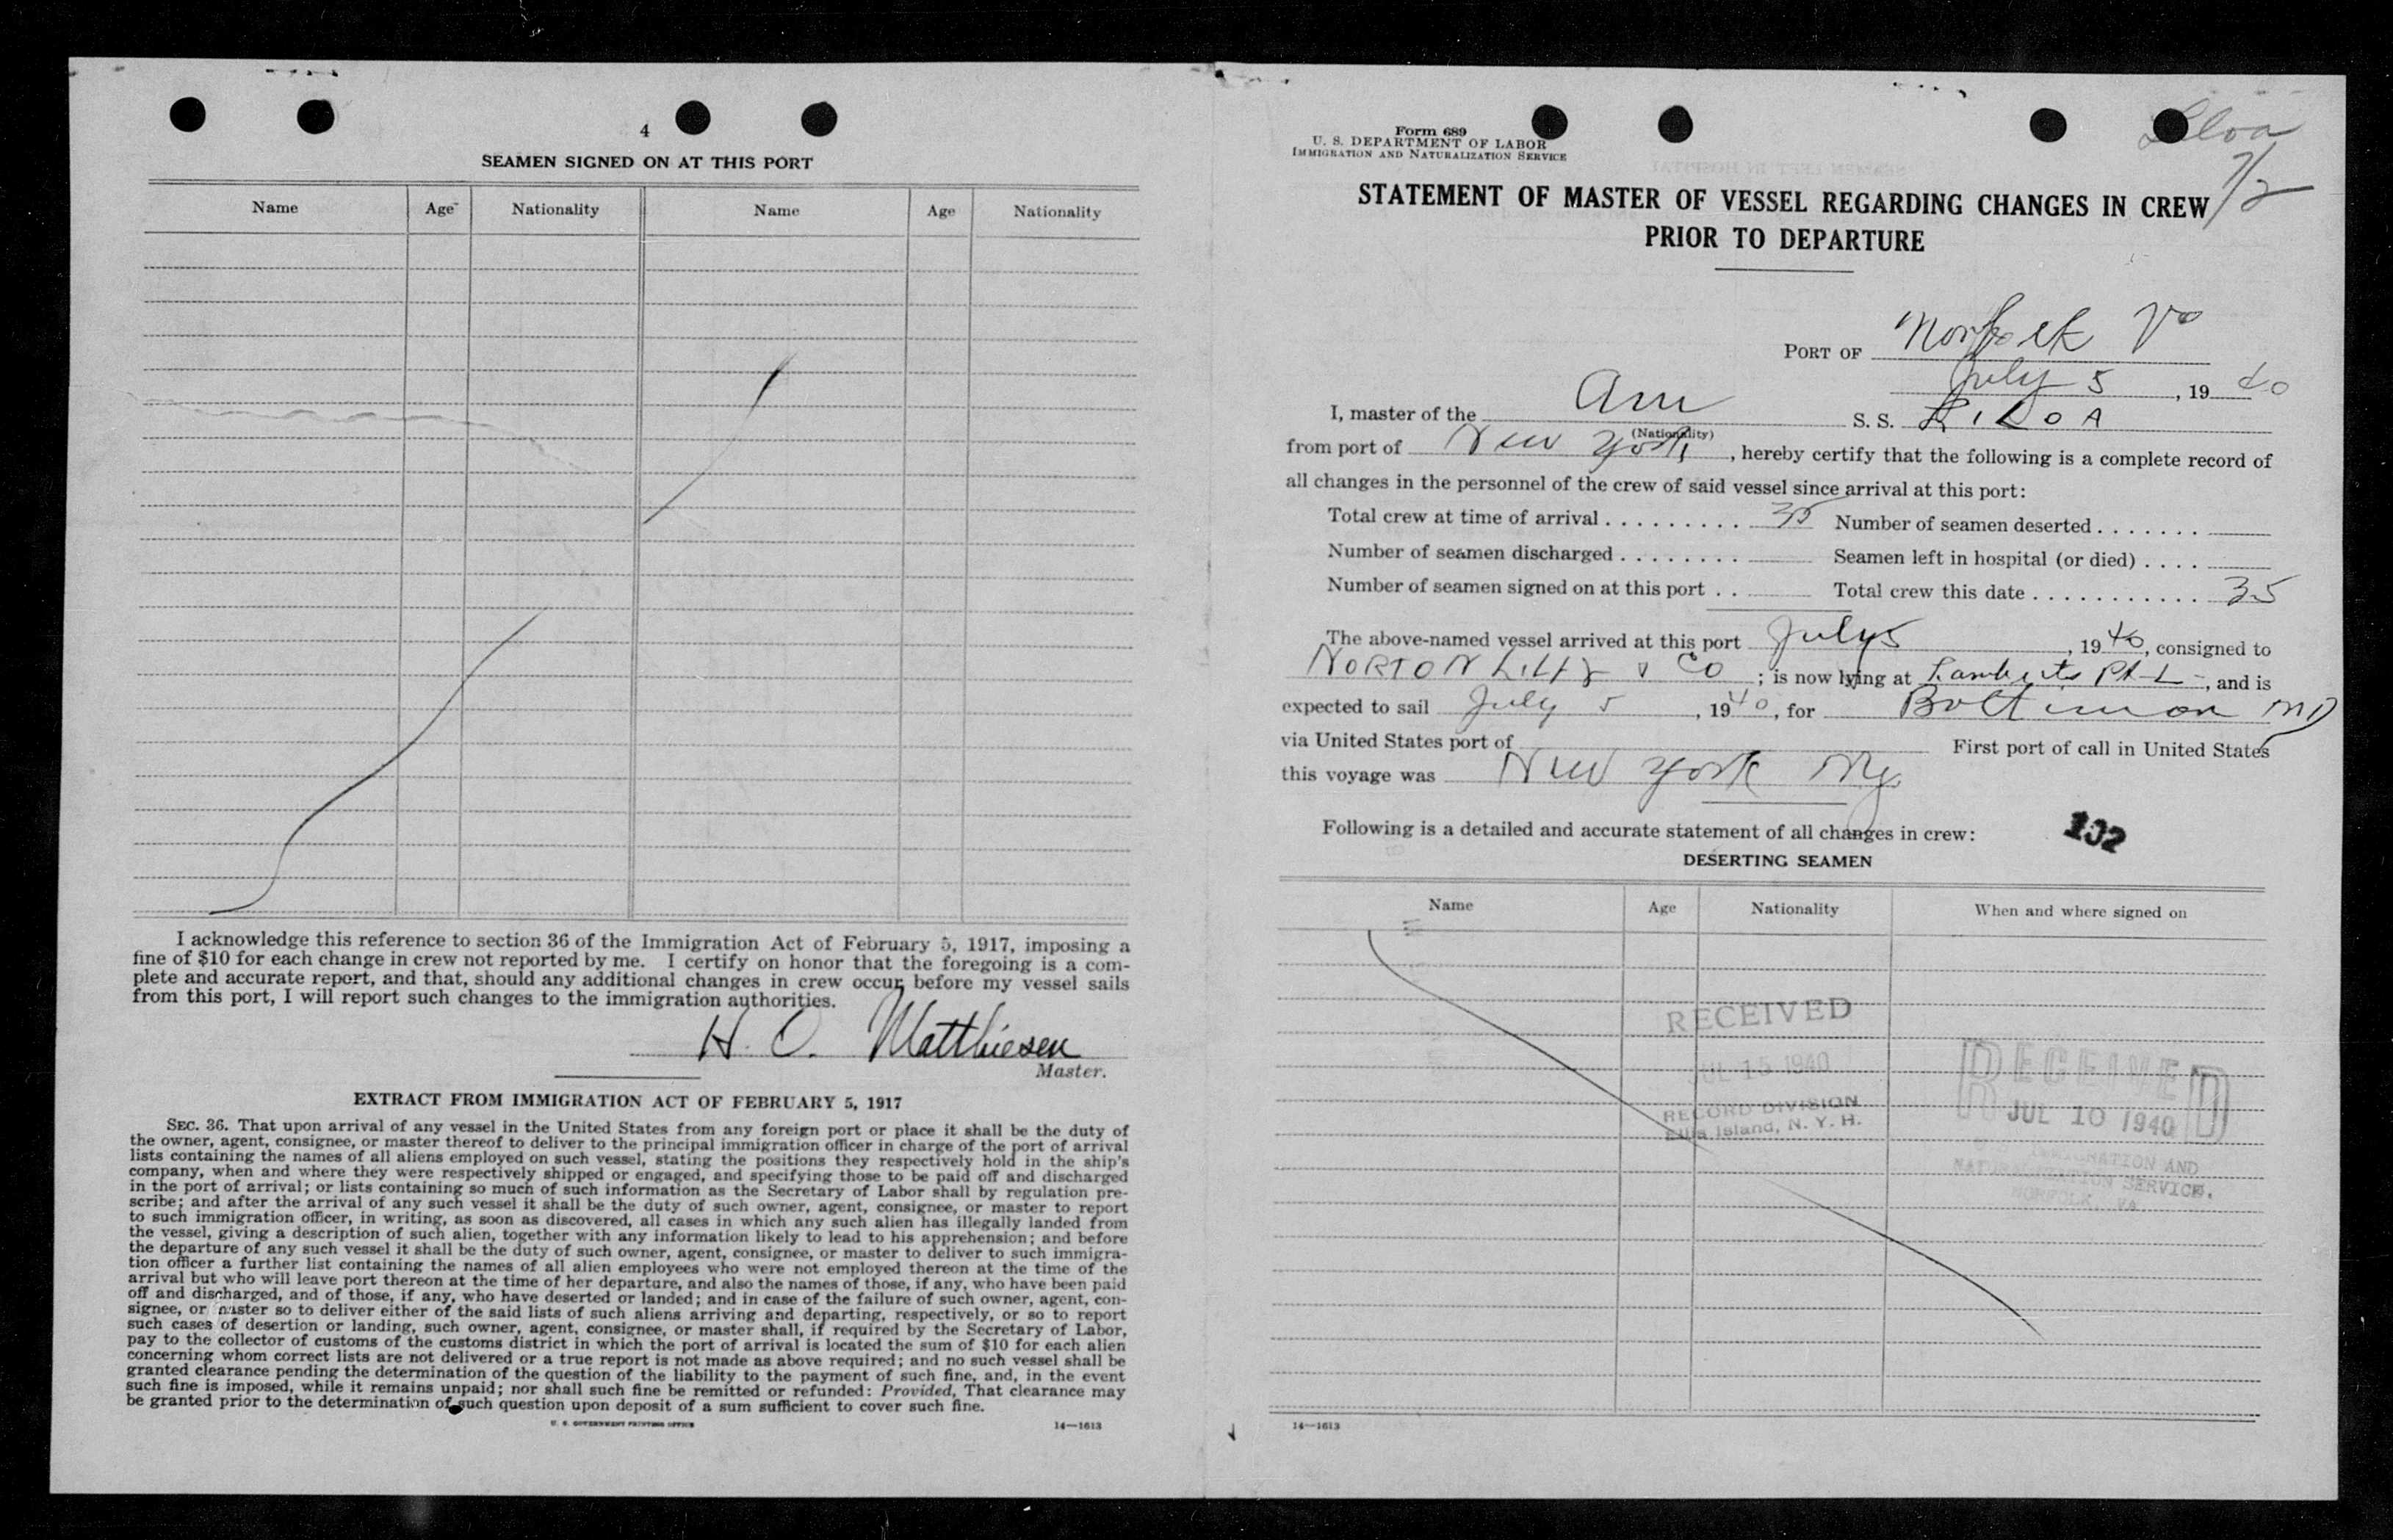 4
SEAMEN SIGNED ON AT THIS PORT
Name Age Nationality Name Age Nationality
I acknowledge this reference to section 36 of the Immigration Act of February 5, 1917, imposing a
fine of $10 for each change in crew not reported by me. I certify on honor that the foregoing is a com-
plete and accurate report, and that, should any additional changes in crew occur before my vessel sails
from this port, I will report such changes to the immigration authorities.
H. O. Matthiesen
Master.
EXTRACT FROM IMMIGRATION ACT OF FEBRUARY 5, 1917
SEC. 36. That upon arrival of any vessel in the United States from any foreign port or place it shall be the duty of
the owner, agent, consignee, or master thereof to deliver to the principal immigration officer in charge of the port of arrival
lists containing the names of all aliens employed on such vessel, stating the positions they respectively hold in the ship's
company, when and where they were respectively shipped or engaged, and specifying those to be paid off and discharged
in the port of arrival; or lists containing so much of such information as the Secretary of Labor shall by regulation pre-
scribe; and after the arrival of any such vessel it shall be the duty of such owner, agent, consignee, or master to report
to such immigration officer, in writing, as soon as discovered, all cases in which any such alien has illegally landed from
the vessel, giving a description of such alien, together with any information likely to lead to his apprehension; and before
the departure of any such vessel it shall be the duty of such owner, agent, consignee, or master to deliver to such immigra-
tion officer a further list containing the names of all alien employees who were not employed thereon at the time of the
arrival but who will leave port thereon at the time of her departure, and also the names of those, if any, who have been paid
off and discharged, and of those, if any, who have deserted or landed; and in case of the failure of such owner, agent, con-
signee, or master so to deliver either of the said lists of such aliens arriving and departing, respectively, or so to report
such cases of desertion or landing, such owner, agent, consignee, or master shall, if required by the Secretary of Labor,
pay to the collector of customs of the customs district in which the port of arrival is located the sum of $10 for each alien
concerning whom correct lists are not delivered or a true report is not made as above required; and no such vessel shall be
granted clearance pending the determination of the question of the liability to the payment of such fine, and, in the event
such fine is imposed, while it remains unpaid; nor shall such fine be remitted or refunded: Provided, That clearance may
be granted prior to the determination of such question upon deposit of a sum sufficient to cover such fine.
U. S. GOVERNMENT PRINTING OFFICE 14—1613
Form 689
U. S. DEPARTMENT OF LABOR
IMMIGRATION AND NATURALIZATION SERVICE
7/2
STATEMENT OF MASTER OF VESSEL REGARDING CHANGES IN CREW
PRIOR TO DEPARTURE
PORT OF Norfolk Va
July 5, 1940
I, master of the Am S. S. LILOA
(Nationality)
from port of New York, hereby certify that the following is a complete record of
all changes in the personnel of the crew of said vessel since arrival at this port:
Total crew at time of arrival . . . . . . . . . 35 Number of seamen deserted . . . . . . .
Number of seamen discharged . . . . . . . . Seamen left in hospital (or died) . . . .
Number of seamen signed on at this port . . Total crew this date . . . . . . . . . . . 35
The above-named vessel arrived at this port July 5, 1940, consigned to
NORTON LILLY & CO; is now lying at Lamberts Pt, and is
expected to sail July 5, 1940, for Baltimore MD
via United States port of First port of call in United States
this voyage was New York Ny
Following is a detailed and accurate statement of all changes in crew:
132
DESERTING SEAMEN
Name Age Nationality When and where signed on
RECEIVED
JUL 15 1940
RECORD DIVISION
Ellis Island, N. Y. H.
RECEIVED
JUL 10 1940
IMMIGRATION AND
NATURALIZATION SERVICE,
NORFOLK, VA.
14—1613